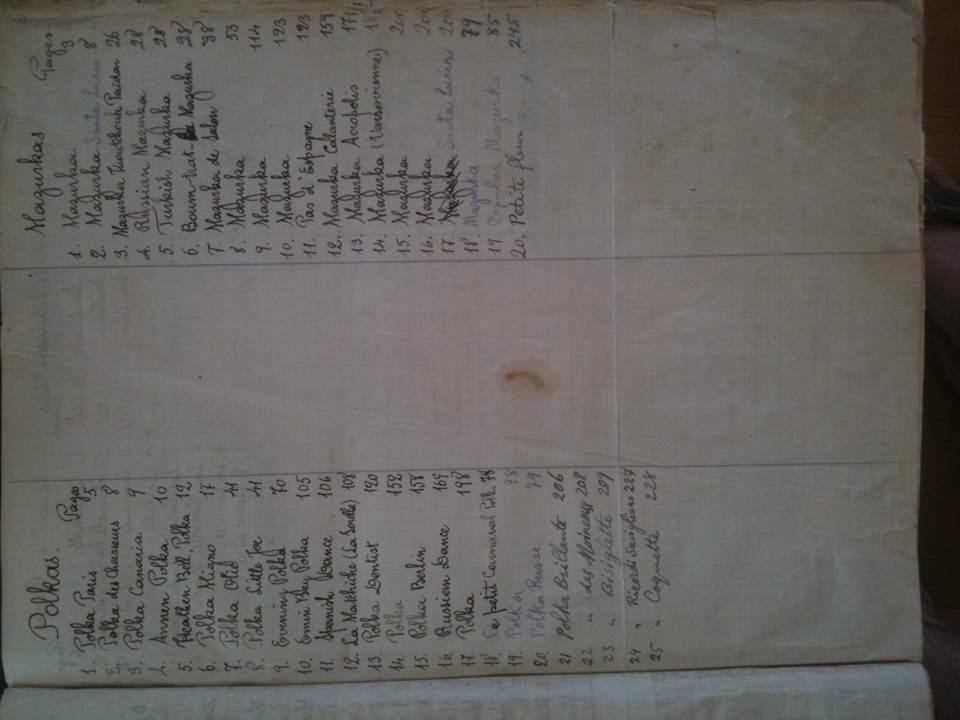 Polkas. Pages
1. Polka Paris 5
2. Polka des Chasseurs 8
3. Polka Canaria 9
4. Annen Polka 10
5. Heather Bell, Polka 12
6. Polka Migno 17
7. Polka Olid 41
8. Polka Little Joe 41
9. Evening Polka 70
10. Emin Bey Polka 105
11. Spanish Dance 106
12. La Matchiche (La Sorella) 108
13. Polka Dentist 120
14. Polka 152
15. Polka Berlin 158
16. Russian Dance 169
17. Polka 198
18. Le petit Carnaval Polk. 78
19. Polka 78
20. Polka Russe 79
21 Polka Brillante 206
22 " des 208
23 " 209
24 " Ricordi 227
25 " Coquette 228
Mazurkas Pages
1. Mazurka 3
2. Mazurka Santa Lucia 8
3. Mazurka 26
4. Russian Mazurka 28
5. Turkish Mazurka 28
6. Boum-trat- Mazurka 28
7. Mazurka de Salon 38
8. Mazurka 53
9. Mazurka 114
10. Mazurka 123
11. Pas d'Espagne 123
12. Mazurka Galanterie 159
13. Mazurka Acropolis 171
14. Mazurka (Varsovienne)
15. Mazurka 200
16. Mazurka 200
17. Mazurka Santa Lucia 200
18. Mazurka 79
19. Popular Mazurka 85
20. Petite fleur 245